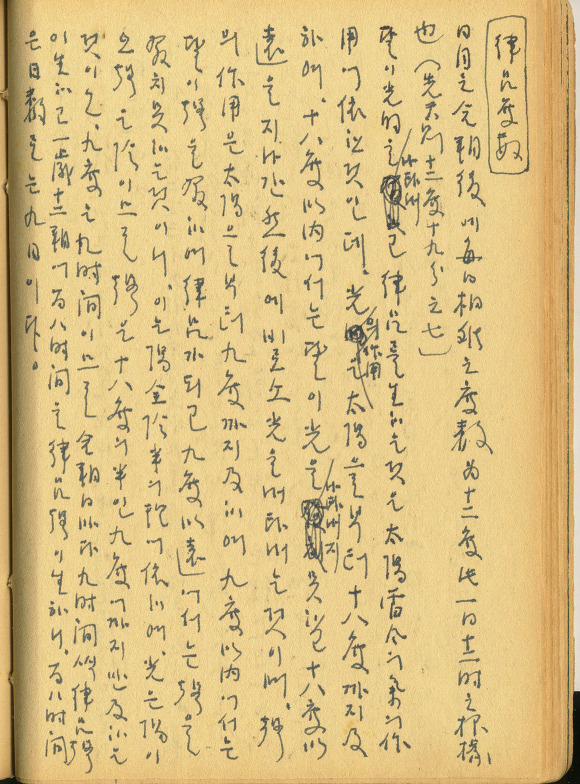 律呂度數
日月之會朔後에 每日相離之度數 为十二度 此一日十二时之
也 (先天則 十二度十九分之七)
달이 光明을 나타내고 律呂를 生하는 것은 太陽 의 氣의 作
用에 依한 것인데, 光의作用은 太陽으로부터 十八度까지 及
하며, 十八度以內에서는 달이 光을 나타내지 못하고 十八度以
遠을 지나간 然後에 비로소 光을 나타내는 것이며, 聲
의 作用은 太陽으로부터 九度까지 及하며 九度以內에서는
달이 聲을 發하여 律呂가 되고 九度以遠에서는 聲을
發치 못하는 것이니, 이는 陽全陰半의 理에 依하여, 光은 陽이
오 聲은 陰이므로 聲은 十八度의 半인 九度에까지만 及하는
것이오, 九度는 九时间이므로 合朔日마다 九时间씩 律呂聲
이 生하고 一歲十二朔에 百八时间의 律呂聲이 生하니, 百八时间
은 日數로는 九日이다.